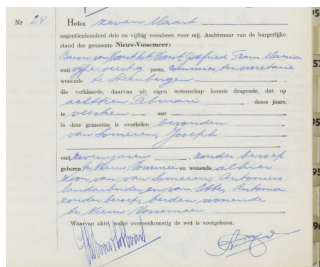 Nr 24 Heden zeven Maart
negentienhonderd drie en vijftig verscheen voor mij, Ambtenaar van de burgerlijke
stand der gemeente Nieuw-Vossemeer:
Frans Maria
oud vijf en veertig jaren,
wonende te Steenbergen
die verklaarde, daarvan uit eigen wetenschap kennis dragende, dat op
achtsten Februari dezes jaars,
te uur
in deze gemeente is overleden bevonden
van Someren, Joseph
oud zeven jaren, zonder beroep
geboren te Nieuw Vossemeer en wonende alhier
zoon van van Someren, Antonius
landarbeider en van Antonia
zonder beroep beiden wonende
te Nieuw Vossemeer
Waarvan akte, welke overeenkomstig de wet is voorgelezen.